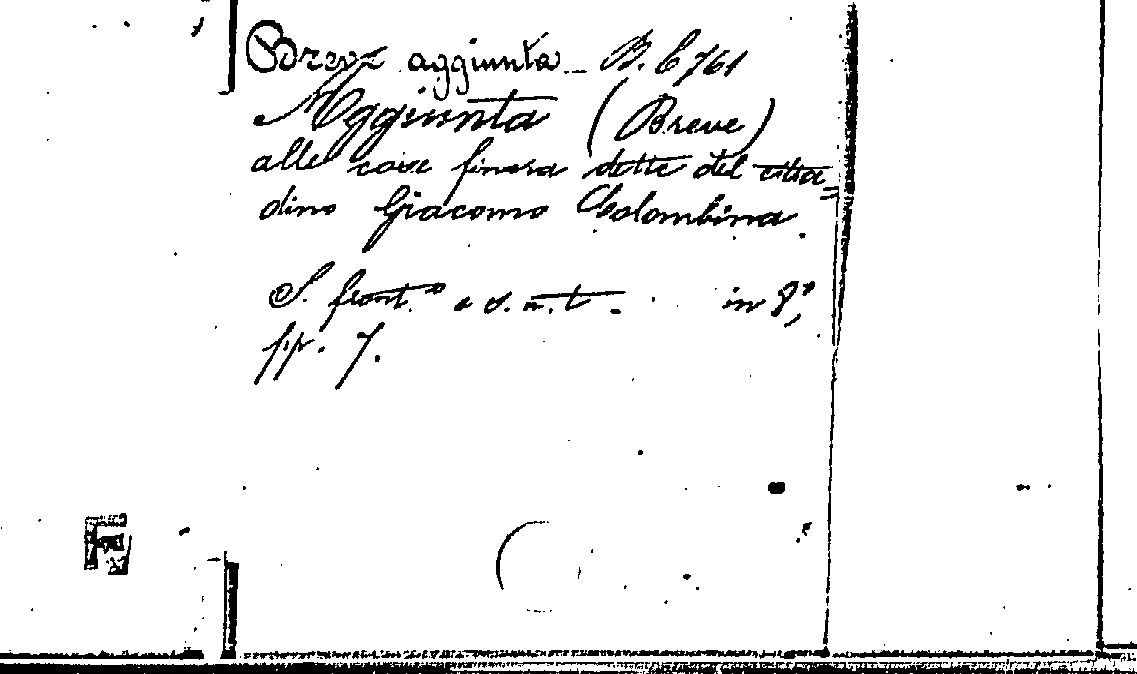 Breve aggiunta - B. C 761
Aggiunta (Breve)
alle cose finora dette del citta=
dino Giacomo Colombina.
S. front.º e s. n. t. in 8º,
pp. 7.